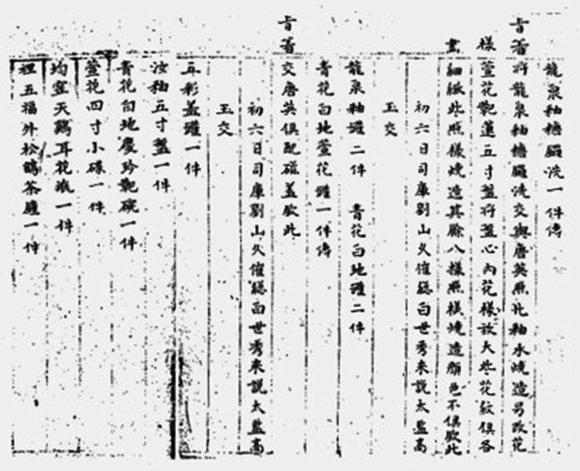 龍泉釉糖鑼洗一件傳
旨着將龍泉釉糖鑼洗交與唐英照此釉水燒造另改花
樣萱花靶蓮五寸盤將盤心內花樣放大些花紋俱各
畫細緻些照樣燒造其餘八樣照樣燒造顏色不俱欽此
初六日司庫劉山久催總白世秀來說太監高
玉交
龍泉釉罐二件 青花白地罐二件
青花白地萱花罐一件傳
旨着交唐英俱配磁蓋欽此
初六日司庫劉山久催總白世秀來說太監高
玉交
五彩蓋罐一件
汝釉五寸盤一件
青花白地慶玲靶碗一件
萱花四寸小碟一件
均窰天鷄耳花瓶一件
裡五福外松鶴茶鐘一件